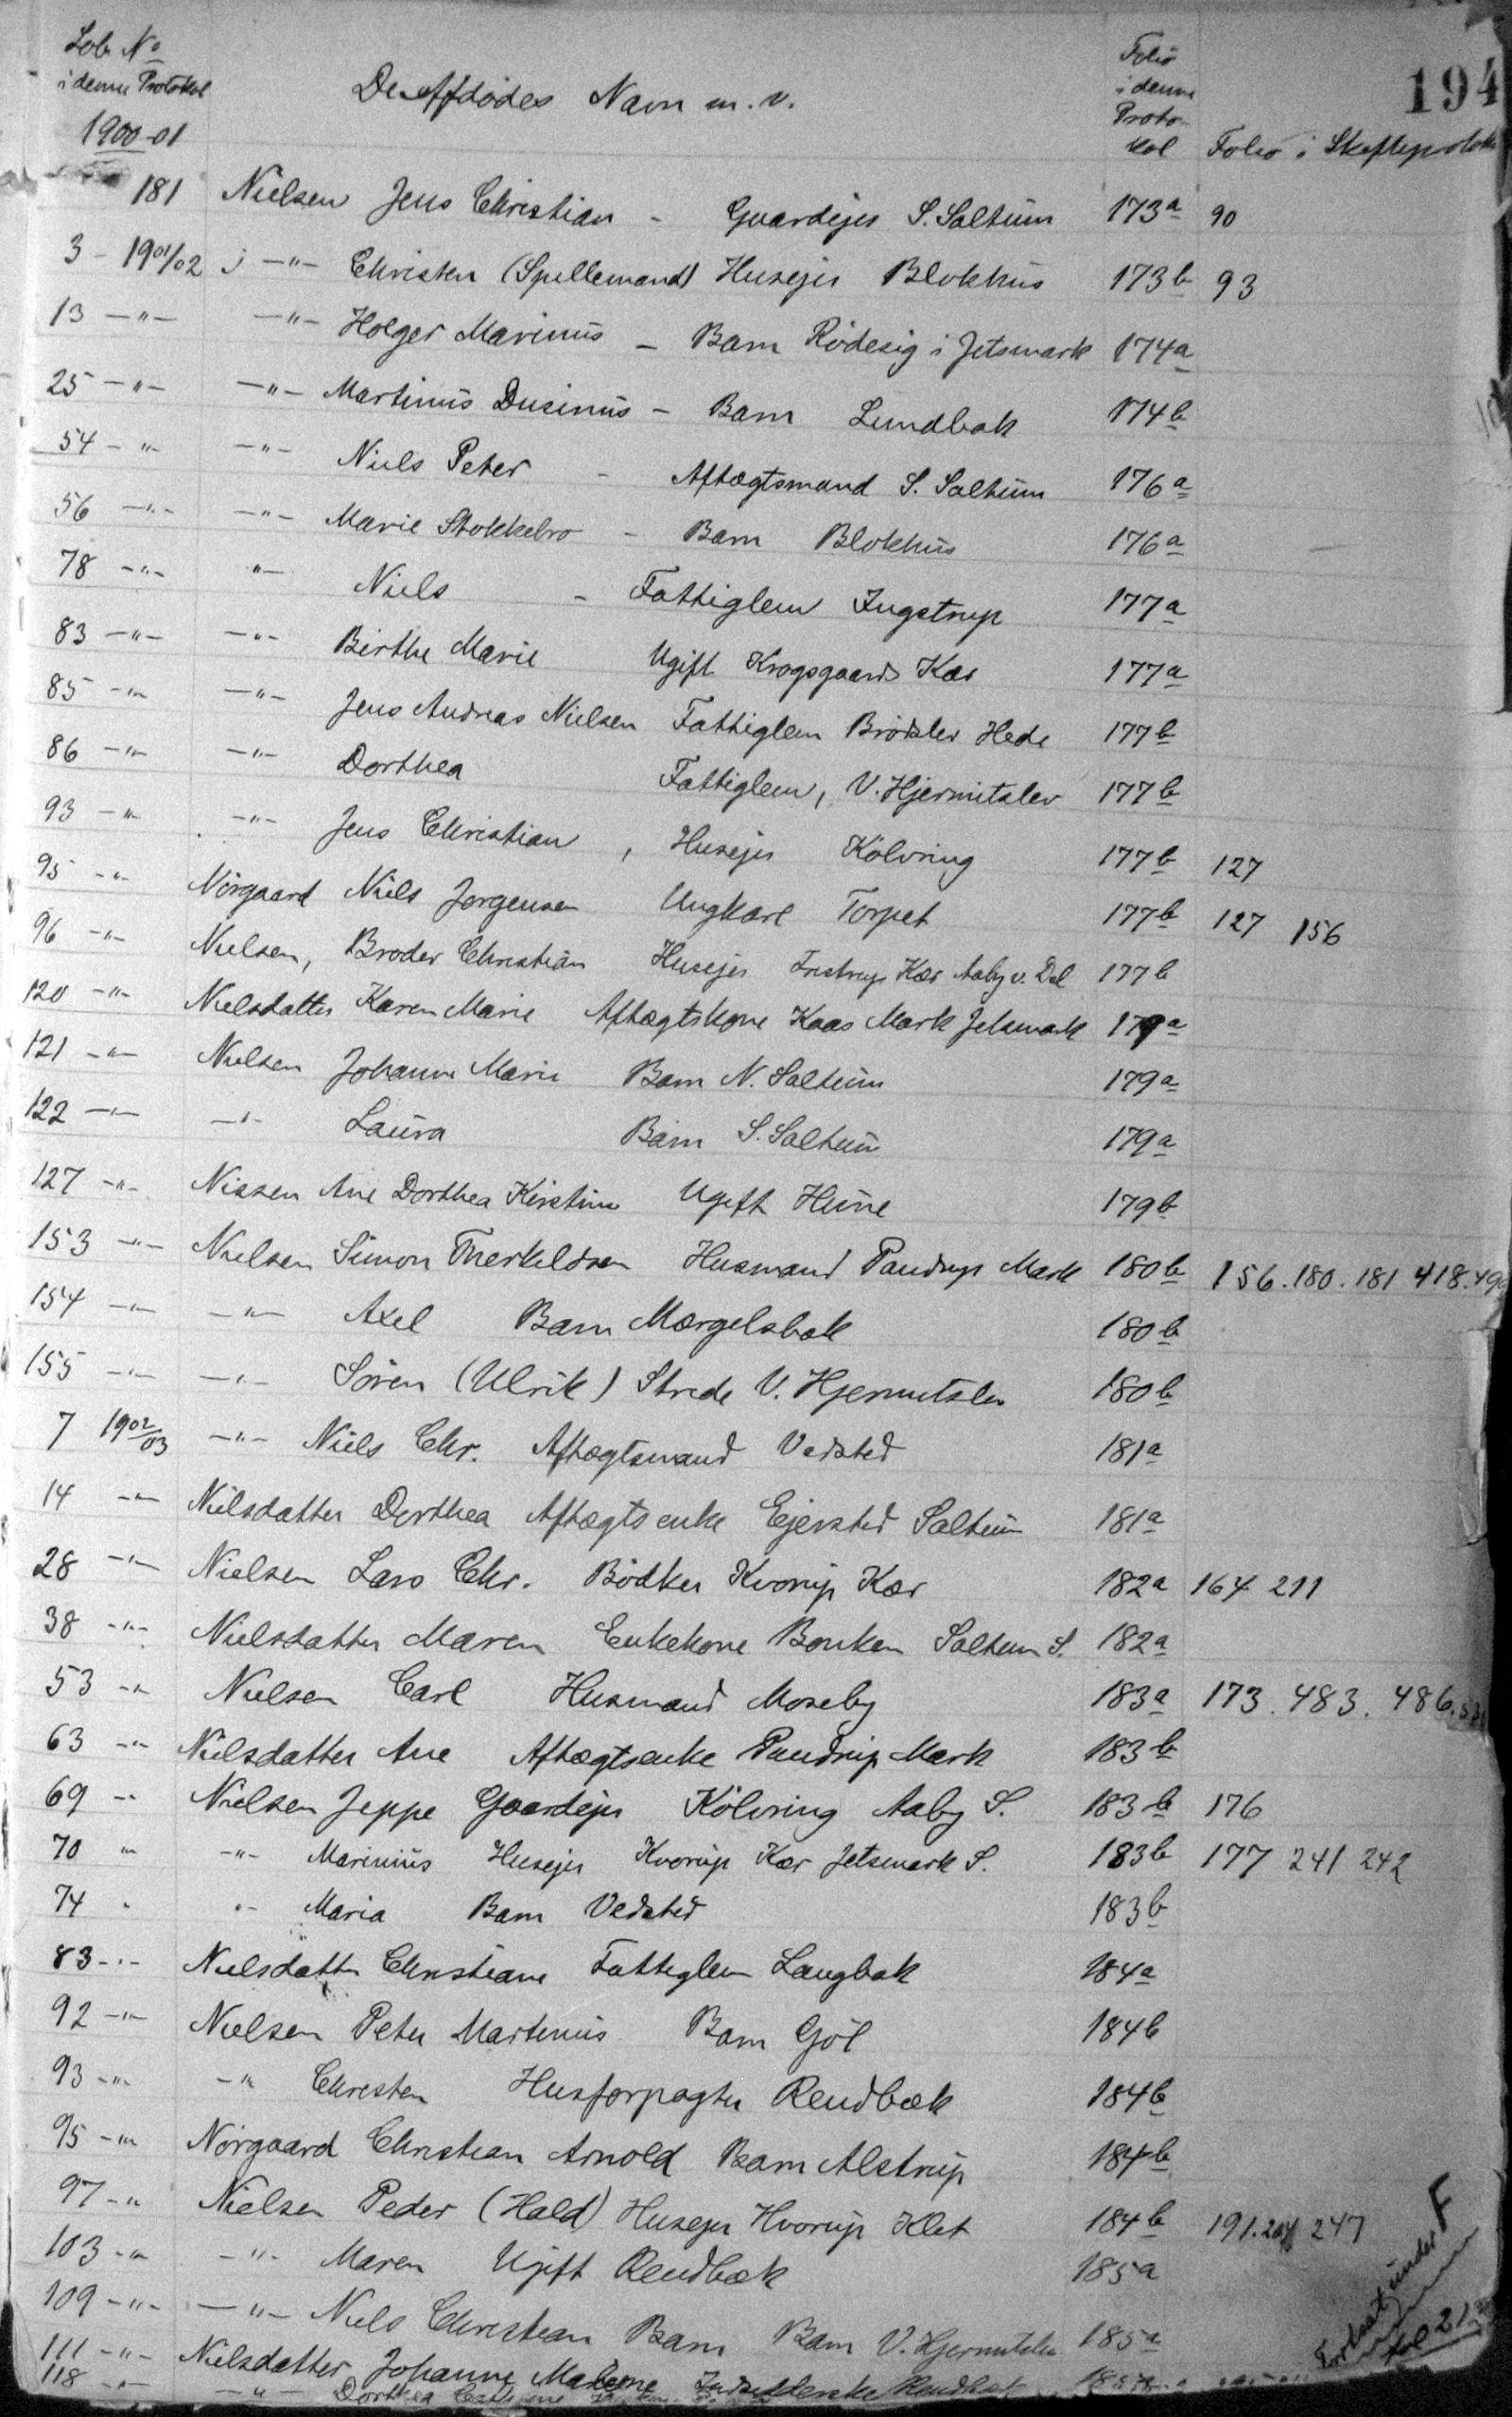 194
Løb. No i denne Protokol 1900-01 De Afdødes Navn m. v. Folio i denne Protokol Folio i Skifteprotok
181 Nielsen Jens Christian - Gaardejer S. Saltum 173a 90
3 - 1901/02 -"- Christen (Spillemand) Husejer Blokhus 173b 93
13 -"- -"- Holger Marinus - Barn Rødesig i Jetsmark 174a
25 -"- -"- Martinus Dusinus - Barn Lundbak 174b
54 -"- -"- Niels Peter - Aftægtsmand S. Saltum 176a
56 -"- -"- Marie Stokkebro - Barn Blokhus 176a
78 -"- "- Niels - Fattiglem Ingstrup 177a
83 -"- -"- Birthe Marie Ugift Krogsgaards Kær 177a
85 -"- -"- Jens Andreas Nielsen Fattiglem Brødslev Hede 177b
86 -"- -"- Dorthea Fattiglem, V. Hjermitslev 177b
93 -"- -"- Jens Christian, Husejer Kølvring 177b 127
95 -"- Nørgaard Niels Jørgensen Ungkarl Torpet 177b 127 156
96 -"- Nielsen, Broder Christian Husejer Kær Aaby v. Del 177b
120 -"- Nielsdatter Karen Marie Aftægtskone Kaas Mark Jetsmark 179a
121 -"- Nielsen Johanne Marie Barn N. Saltum 179a
122 -"- -"- Laura Barn S. Saltum 179a
127 -"- Nissen Ane Dorthea Kirstine Ugift Hune 179b
153 -"- Nielsen Simon Therkildsen Husmand Pandrup Mark 180b 156. 180. 181 418. 49
154 -"- -"- Axel Barn Mærgelsbak 180b
155 -"- -"- Søren (Ulrik) Strede V. Hjermitslev 180b
7 1902/03 -"- Niels Chr. Aftægtsmand Vedsted 181a
14 -"- Nielsdatter Dorthea Aftægtsenke Ejersted Saltum 181a
28 -"- Nielsen Lars Chr. Bødker Kvorup Kær 182a 164 211
38 -"- Nielsdatter Maren Enkekone Bonken Saltum S. 182a
53 -"- Nielsen Carl Husmand Moseby 183a 173. 483. 486.
63 -"- Nielsdatter Ane Aftægtsenke Pandrup Mark 183b
69 -"- Nielsen Jeppe Gaardejer Kølvring Aaby S. 183b 176
70 " -"- Marinius Husejer Kvorup Kær Jetsmark S. 183b 177 241 242
74 " "- Maria Barn Vedsted 183b
83 -"- Nielsdatter Christiane Fattiglem Langbak 184a
92 -"- Nielsen Peter Martinus Barn Gøl 184b
93 -"- -"- Christen Husforpagter Rendbæk 184b
95 -"- Nørgaard Christian Arnold Barn Alstrup 184b
97 -"- Nielsen Peder (Hald) Husejer Hvorup Klet 184b 191. 247
103 -"- -"- Maren Ugift Rendbæk 185a
109 -"- -"- Niels Christian Barn Barn V. Hjermitslev 185a
111 -"- Nielsdatter Johanne Marlene Indsidderske Rendbak 185a
118 -"- -"- Dorthea
Fortsat under F
Fol 21